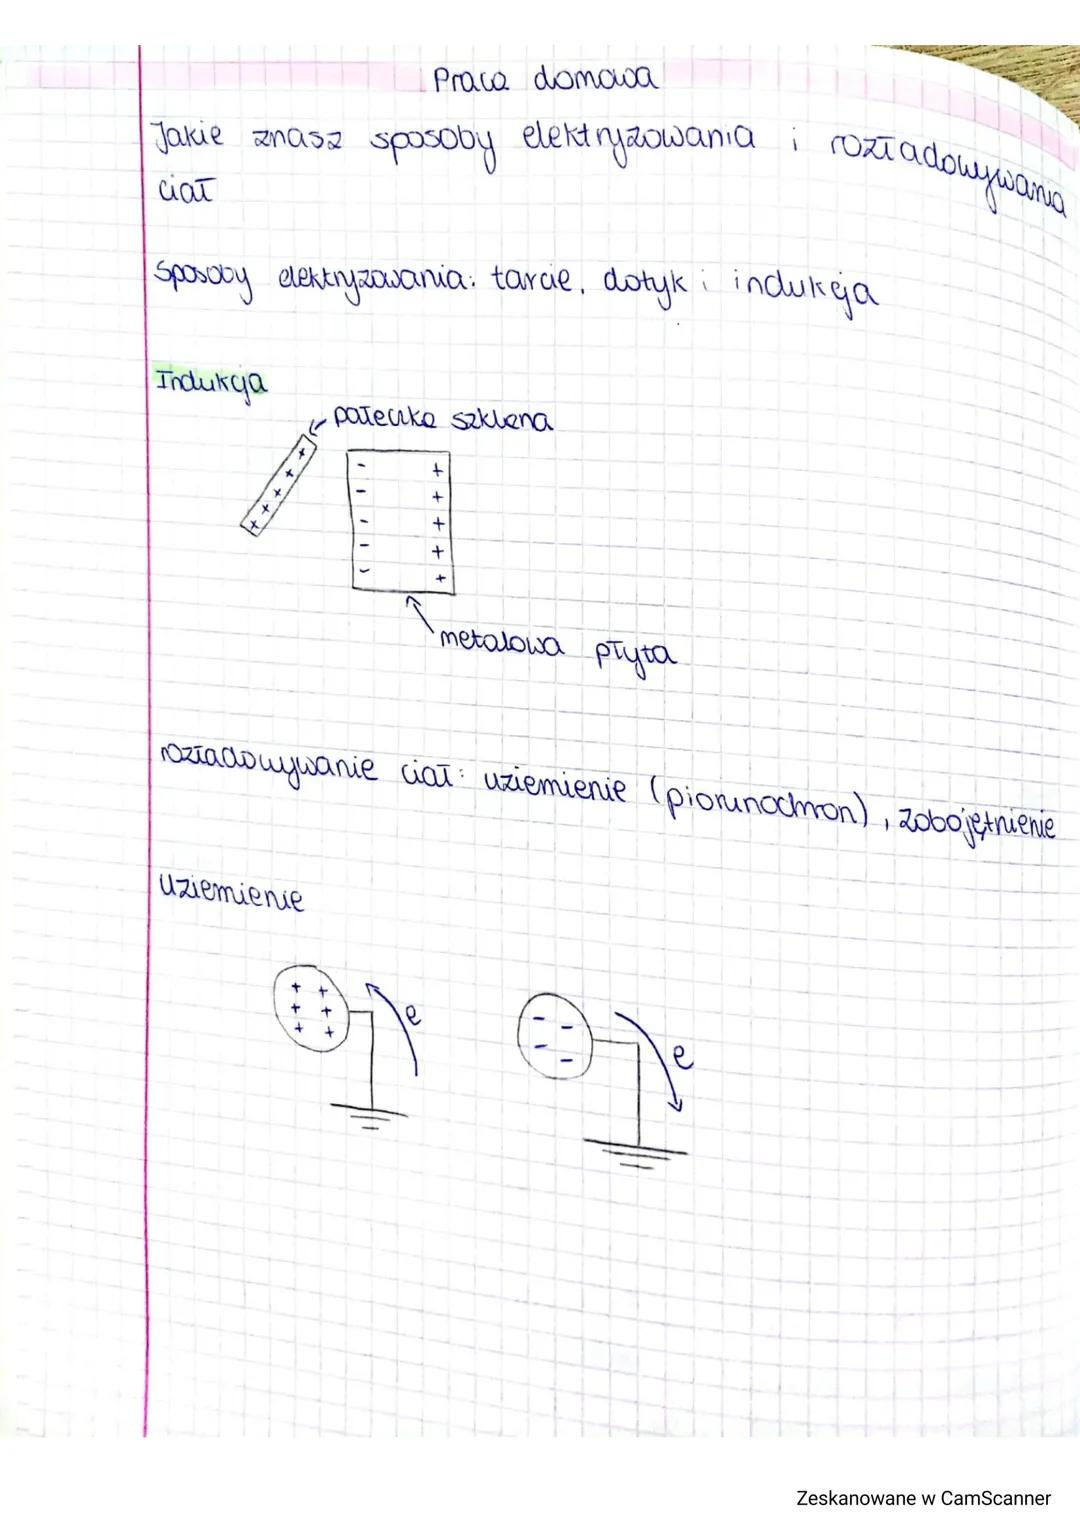 Praca domowa
Jakie znasz sposoby elektryzowania i rozładowywania
ciał
Sposoby elektryzowania: tarcie, dotyk i indukcja
Indukcja
pałeczka szklana
+ + + + +
- +
- +
- +
- +
- +
metalowa płyta
rozładowywanie ciał: uziemienie (piorunochron), zobojętnienie
Uziemienie
+ +
+ +
+ +
e
- -
- -
e
Zeskanowane w CamScanner